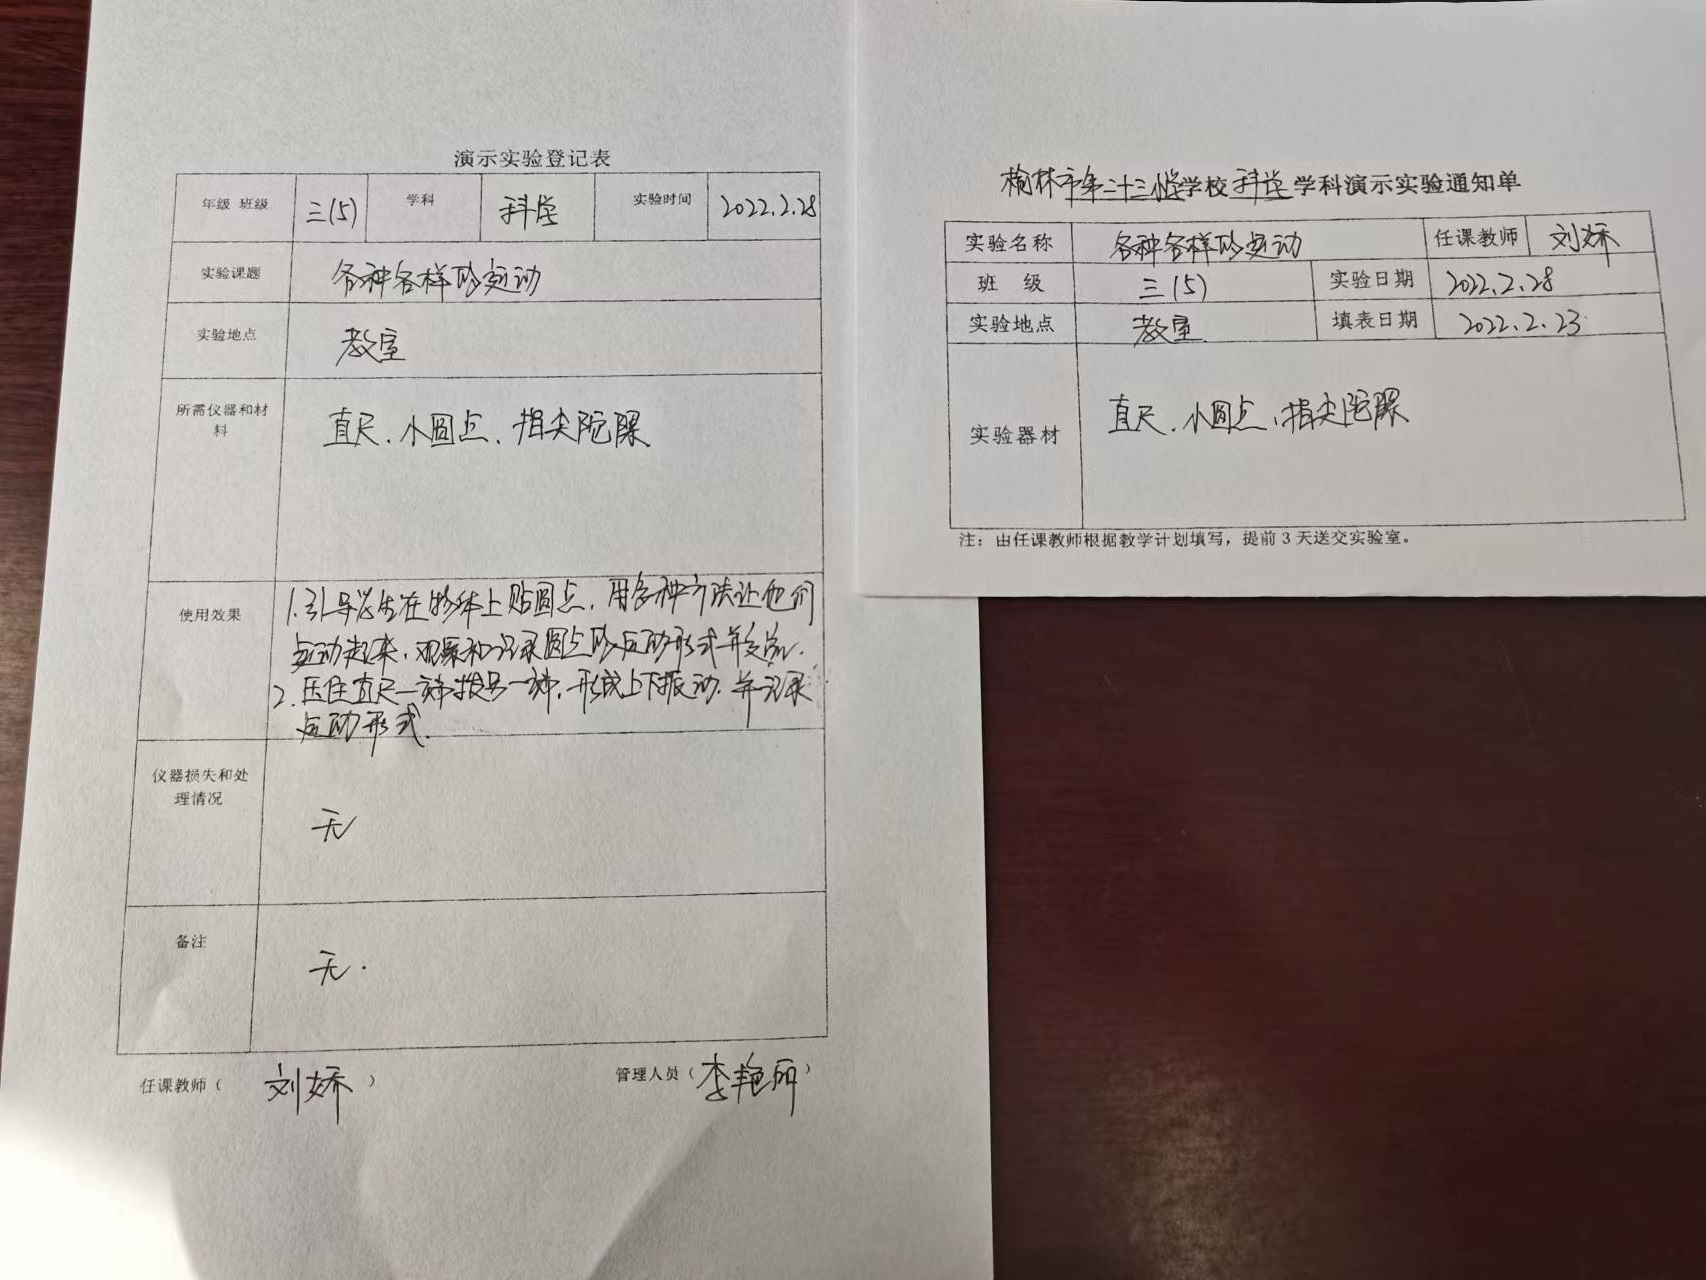 演示实验登记表
年级 班级 三(5) 学科 科学 实验时间 2022.2.28
实验课题 各种各样的运动
实验地点 教室
所需仪器和材
料
直尺、小圆点、指尖陀螺
使用效果
1.引导学生在物体上贴圆点,用各种方法让他们
运动起来,观察和记录圆点的运动形式并交流.
2.压住直尺一端拨另一端,形成上下振动.并记录
运动形式.
仪器损失和处
理情况
无
备注
无.
任课教师( 刘娇 )
管理人员(李艳丽)
榆林市第二十三小学学校科学学科演示实验通知单
实验名称 各种各样的运动 任课教师 刘娇
班 级 三(5) 实验日期 2022.2.28
实验地点 教室. 填表日期 2022.2.23.
实验器材 直尺、小圆点、指尖陀螺
注:由任课教师根据教学计划填写,提前3天送交实验室。